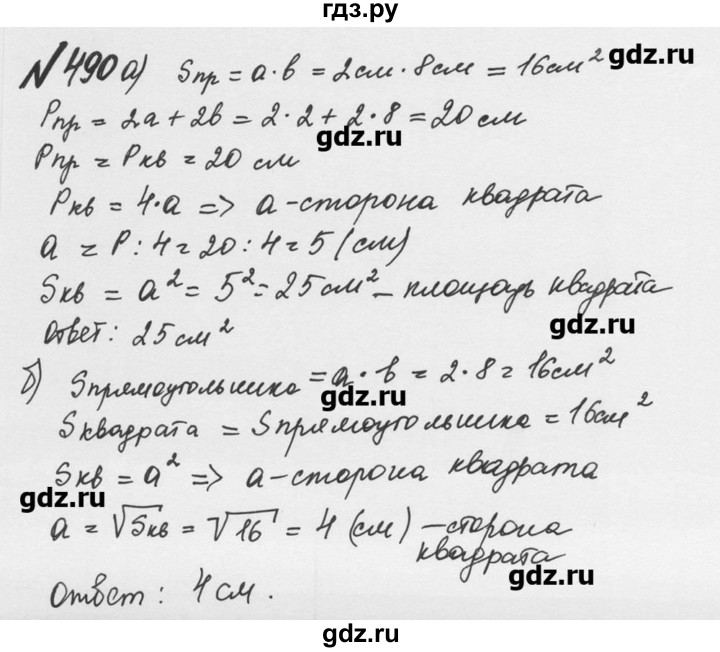 гдз.ру
№490 а) Sпр = a·b = 2см · 8см = 16см² gdz.ru
Рпр = 2a + 2b = 2·2 + 2·8 = 20 см
gdz.ru
Рпр = Ркв = 20 см
Ркв = 4·a => a - сторона квадрата
a = P : 4 = 20 : 4 = 5 (см)
Sкв = a² = 5² = 25 см² – площадь квадрата
gdz.ru
Ответ: 25 см²
б) Sпрямоугольника = a · b = 2·8 = 16см²
gdz.ru
Sквадрата = Sпрямоугольника = 16см²
Sкв = a² => a - сторона квадрата
gdz.ru
a = √Sкв = √16 = 4 (см) – сторона
квадрата
gdz.ru
Ответ: 4 см.
gdz.ru